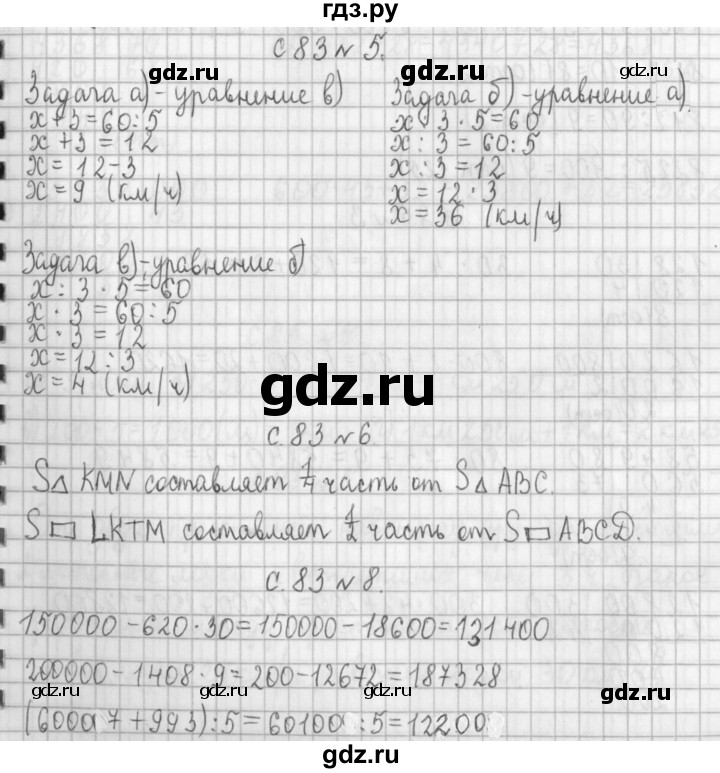 гдз.ру
с. 83 № 5.
gdz.ru gdz.ru gdz.ru
Задача а) - уравнение в)
x+3=60:5
x+3=12
x=12-3
x=9 (км/ч)
Задача б) - уравнение а)
x : 3 · 5=60
x : 3=60:5
x : 3=12
x=12 · 3
x=36 (км/ч)
Задача в) - уравнение б)
x : 3 · 5=60
x · 3=60:5
x · 3=12
x=12:3
x=4 (км/ч)
gdz.ru
с. 83 № 6
S△ KMN составляет 1/4 часть от S△ ABC.
S▭ LKTM составляет 1/2 часть от S▭ ABCD.
с. 83 № 8.
150000-620·30=150000-18600=131400
200000-1408·9=200-12672=187328
gdz.ru gdz.ru gdz.ru
(60007+993):5=60100:5=12200
gdz.ru